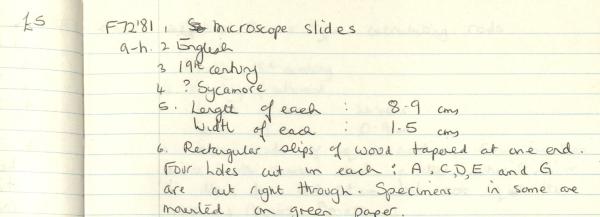 £5
F72'81 1. microscope slides
a-h. 2 English
3 19th century
4 ? Sycamore
5. Length of each : 8.9 cms
Width of each : 1.5 cms
6. Rectangular slips of wood tapered at one end.
Four holes cut in each; A, C, D, E and G
are cut right through. Specimens in some are
mounted on green paper.